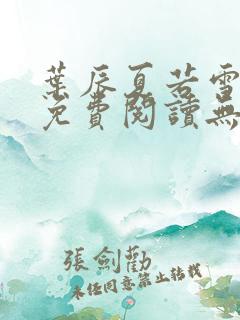 葉辰夏若雪
免費閱讀無
張劍勸
未經同意禁止轉載